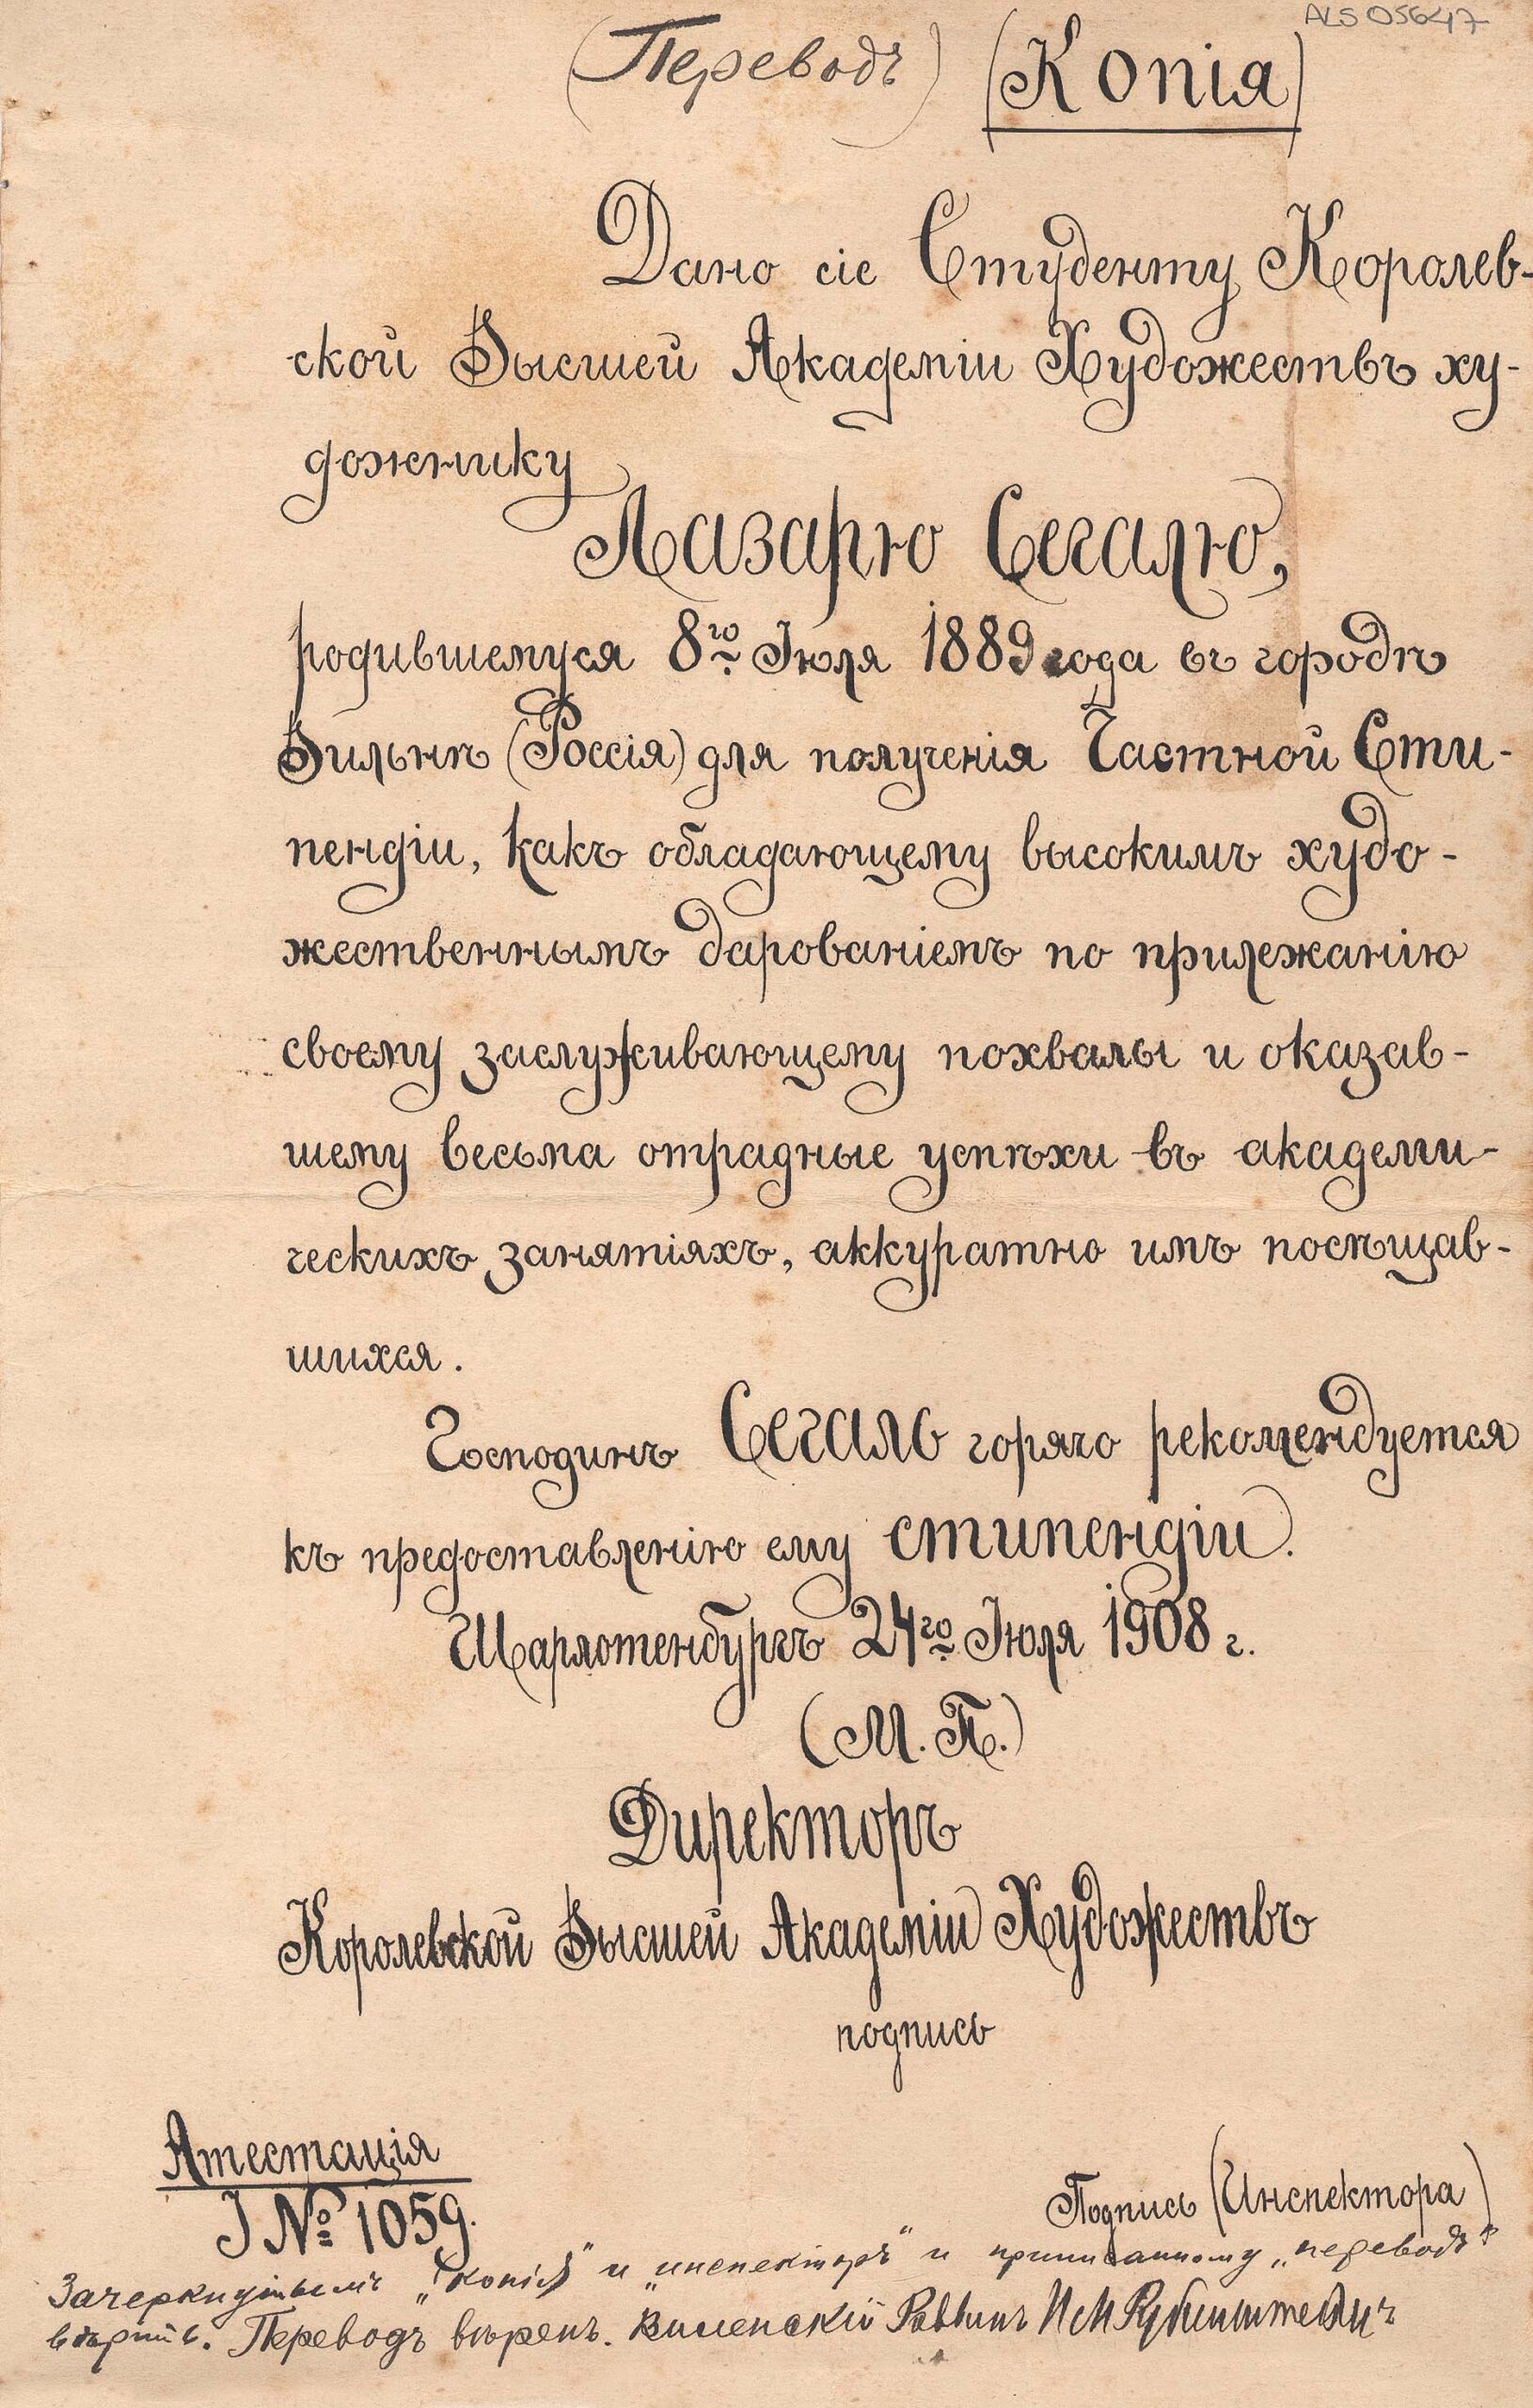 ALS 05647
(Переводъ) (Копія)
Дано сіе Студенту Королев-
ской Высшей Академіи Художествъ ху-
дожнику
Лазарю Сегалю,
родившемуся 8го Іюля 1889 года въ городѣ
Вильнѣ (Россія) для полученія Частной Сти-
пендіи, какъ обладающему высокимъ худо-
жественнымъ дарованіемъ по прилежанію
своему заслуживающему похвалы и оказав-
шему весьма отрадные успѣхи въ академи-
ческихъ занятіяхъ, аккуратно имъ посѣщав-
шихся.
Господинъ Сегаль горячо рекомендуется
къ предоставленію ему стипендіи.
Шарлотенбургъ 24го Іюля 1908 г.
(М. П.)
Директоръ
Королевской Высшей Академіи Художествъ
подпись
Атестація
J № 1059.
Подпись (Инспектора)
Зачеркнутымъ „Копія“ и „инспекторъ“ и приписанному „переводъ“
вѣрить. Переводъ вѣренъ. Виленскій Раввинъ И М Рубинштейнъ